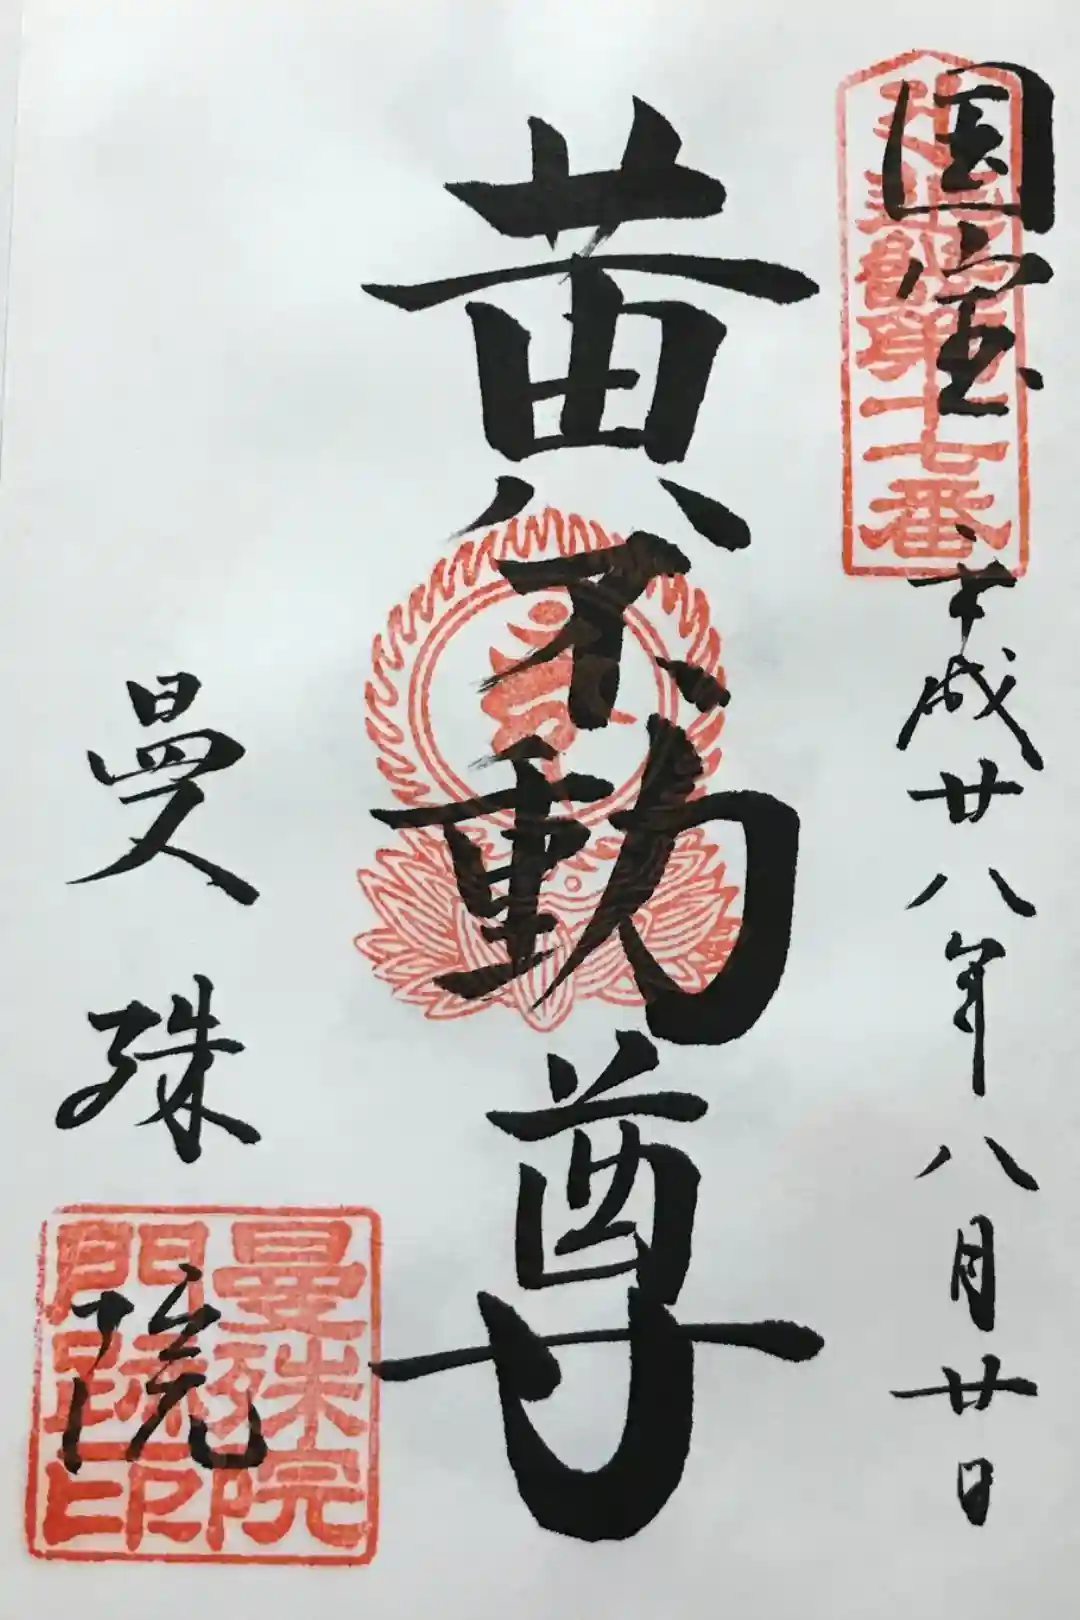 国宝
平成廿八年八月廿日
近畿霊第十七番
黄不動尊
曼殊院
曼殊院
門跡印